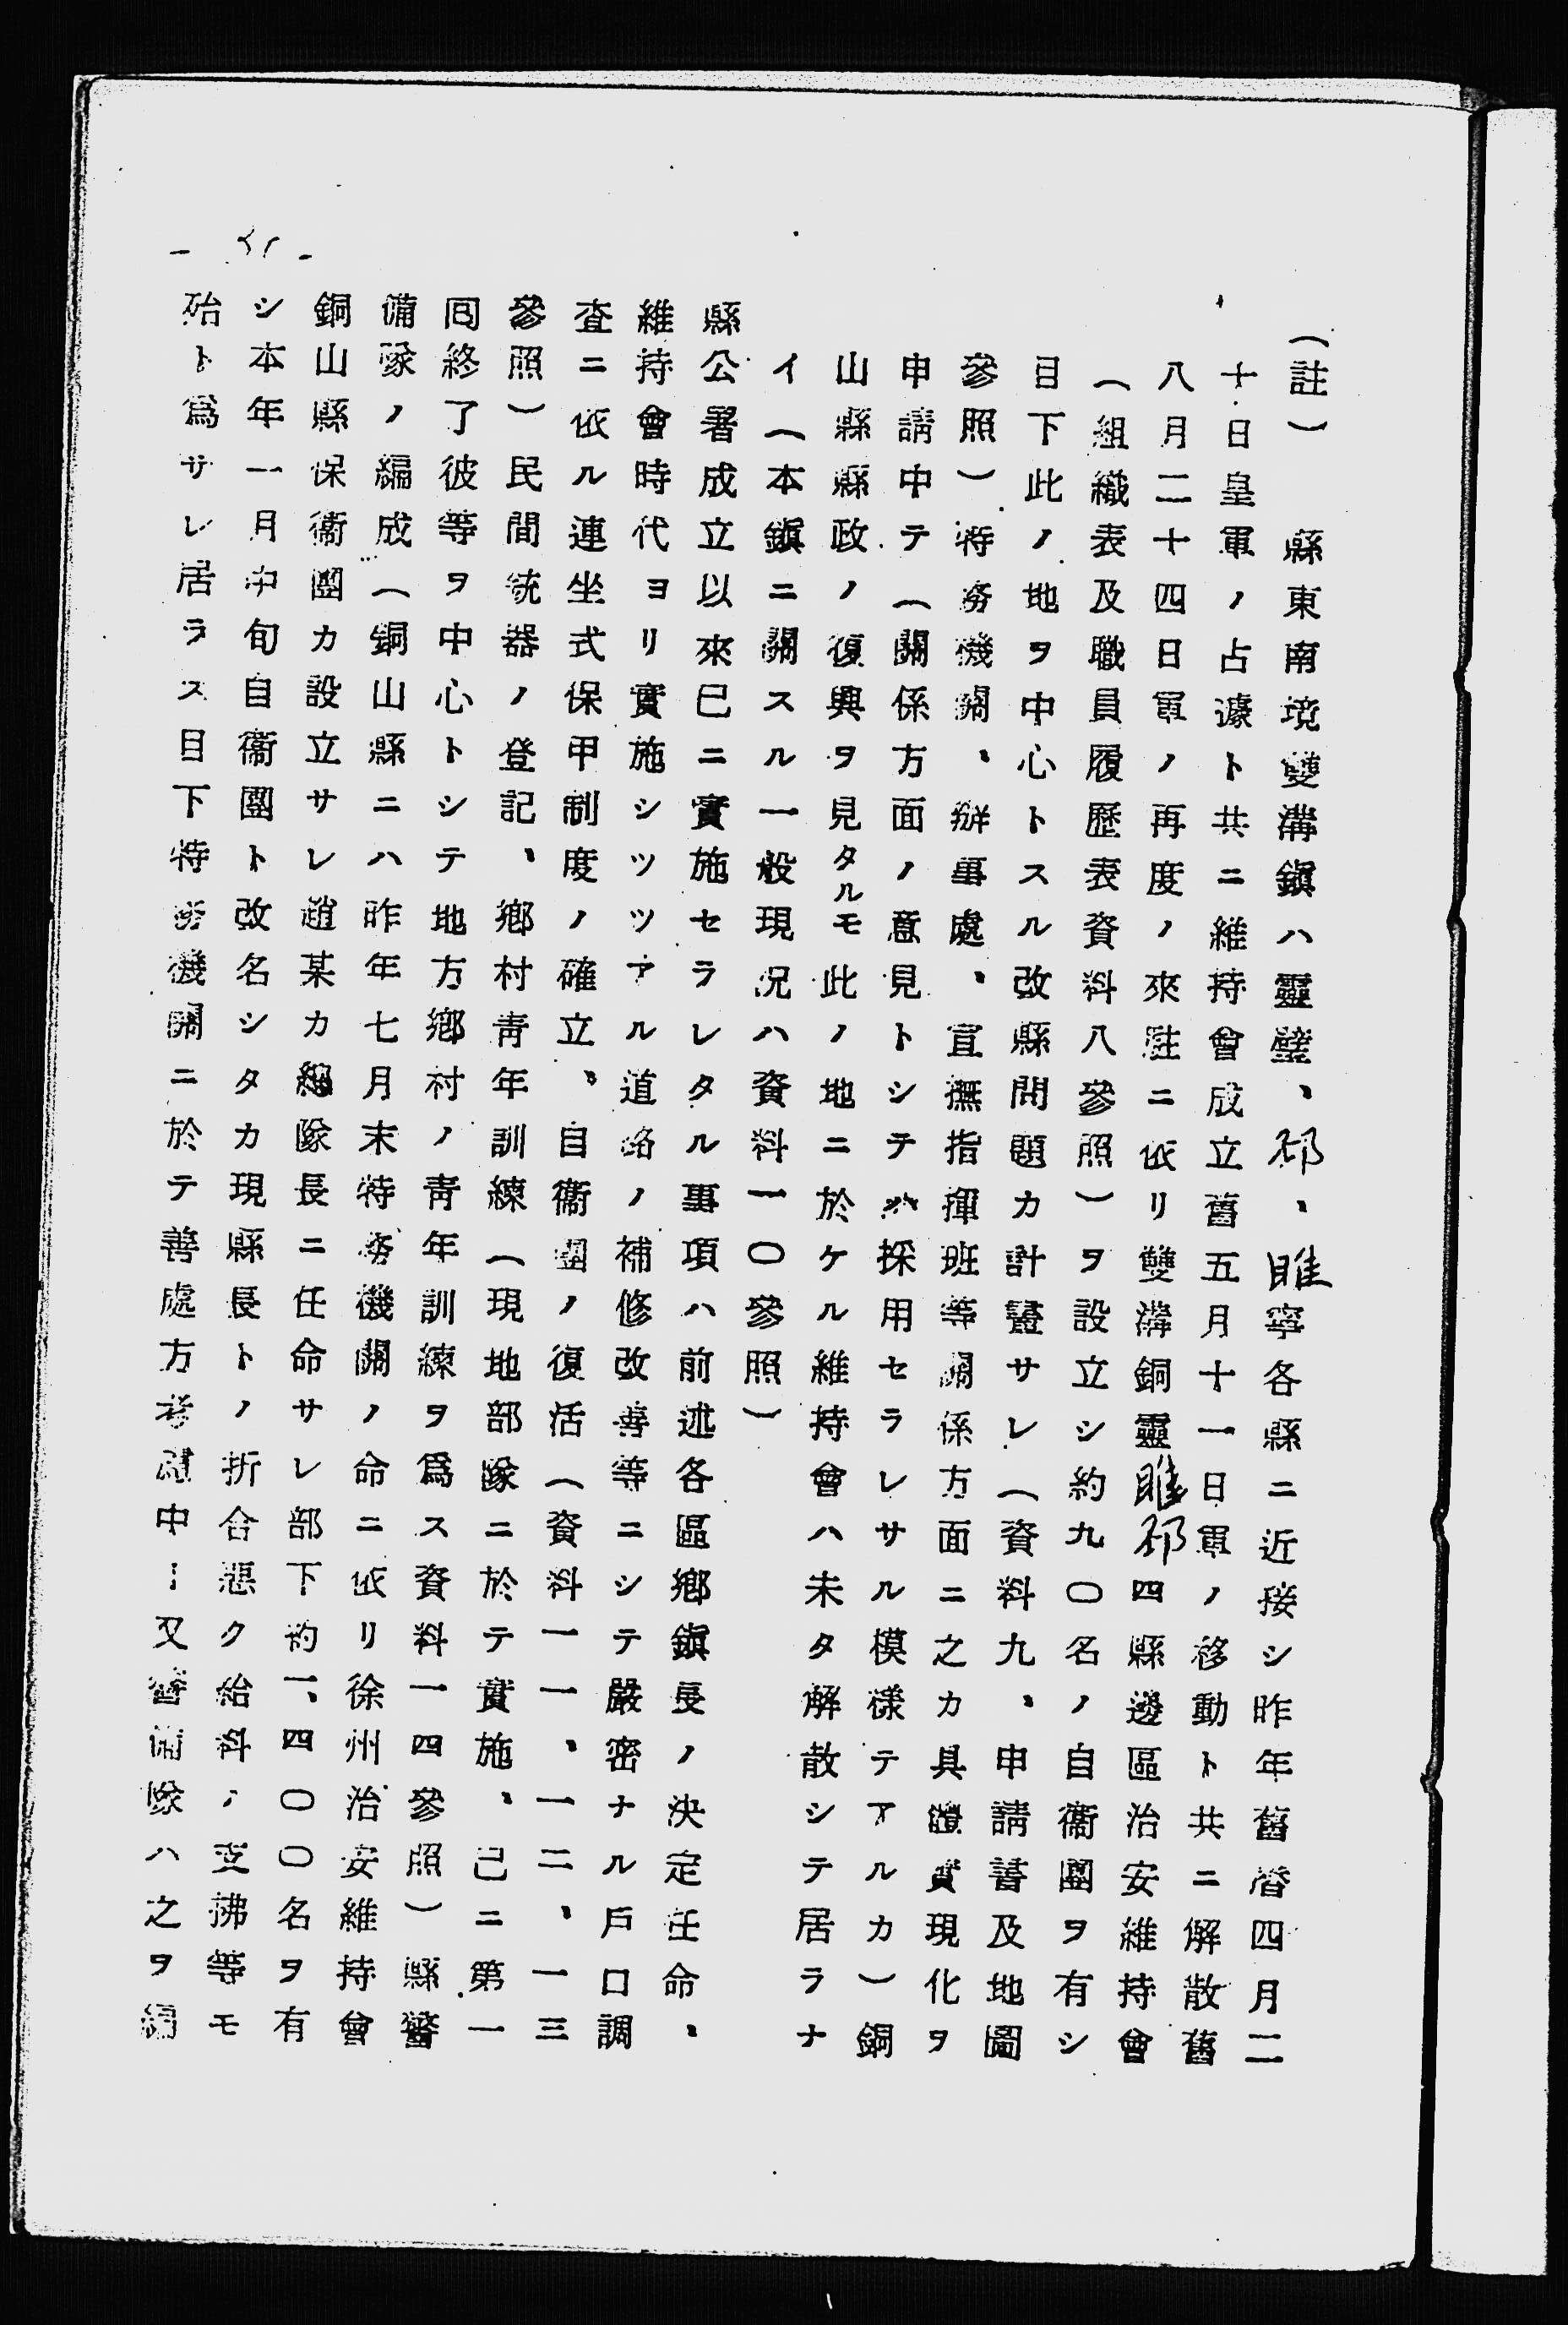 （註）　縣東南境雙溝鎭ハ靈璧、邳、睢寧各縣ニ近接シ昨年舊曆四月二
十日皇軍ノ占據ト共ニ維持會成立舊五月十一日軍ノ移動ト共ニ解散舊
八月二十四日軍ノ再度ノ來駐ニ依リ雙溝銅靈睢邳四縣邊區治安維持會
（組織表及職員履歷表資料八參照）ヲ設立シ約九〇名ノ自衞團ヲ有シ
目下此ノ地ヲ中心トスル改縣問題カ計畫サレ（資料九、申請書及地圖
參照）特務機關、辦事處、宣撫指揮班等關係方面ニ之カ具體實現化ヲ
申請中テ（關係方面ノ意見トシテハ採用セラレサル模樣テアルカ）銅
山縣縣政ノ復興ヲ見タルモ此ノ地ニ於ケル維持會ハ未タ解散シテ居ラナ
イ（本鎭ニ關スル一般現況ハ資料一〇參照）
縣公署成立以來已ニ實施セラレタル事項ハ前述各區鄕鎭長ノ決定任命、
維持會時代ヨリ實施シツツアル道路ノ補修改善等ニシテ嚴密ナル戶口調
査ニ依ル連坐式保甲制度ノ確立、自衞團ノ復活（資料一一、一二、一三
參照）民間銃器ノ登記、鄕村靑年訓練（現地部隊ニ於テ實施、己ニ第一
囘終了彼等ヲ中心トシテ地方鄕村ノ靑年訓練ヲ爲ス資料一四參照）縣警
備隊ノ編成（銅山縣ニハ昨年七月末特務機關ノ命ニ依リ徐州治安維持會
銅山縣保衞團カ設立サレ趙某カ總隊長ニ任命サレ部下約一、四〇〇名ヲ有
シ本年一月中旬自衞團ト改名シタカ現縣長トノ折合惡ク給料ノ支拂等モ
殆ト爲サレ居ラス目下特務機關ニ於テ善處方考慮中…又警備隊ハ之ヲ編